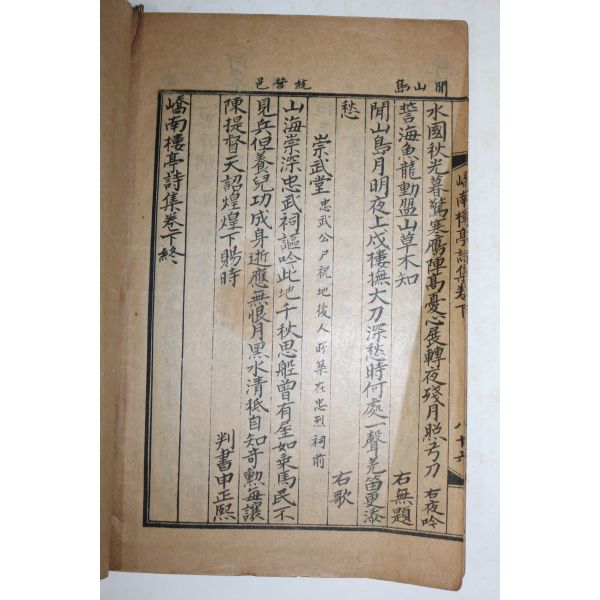 嶠南樓亭詩集卷下 八十六
閒山島
水國秋光暮驚寒鴈陣高憂心展轉夜殘月照弓刀 右夜吟
誓海魚龍動盟山草木知 右無題
閒山島月明夜上戍樓撫大刀深愁時何處一聲羌笛更添
愁 右歌
統營邑
崇武堂 忠武公尸祝地後人所築在忠烈祠前
山海崇深忠武祠謳吟此地千秋思船曾有至如乘馬民不
見兵但養兒功成身逝應無恨月黑水清秪自知奇勳每讓
陳提督天詔煌煌下賜時 判書申正熙
嶠南樓亭詩集卷下終